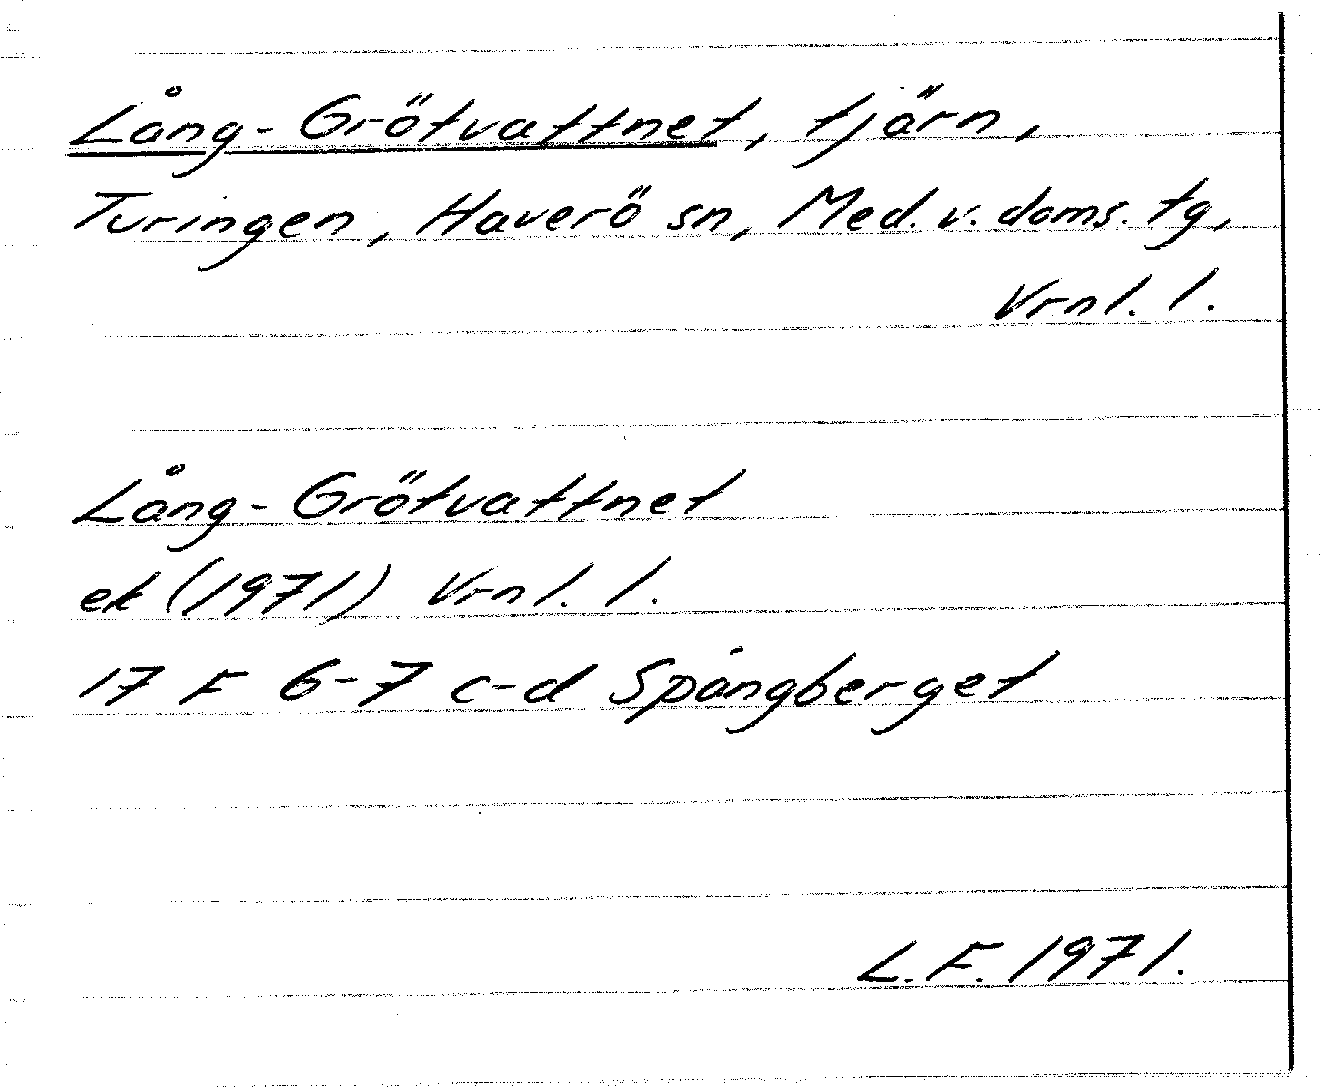 Lång-Grötvattnet, tjärn,
Turingen, Haverö sn, Med. v. doms. tg,
Vrnl. l.
Lång-Grötvattnet
ek (1971) Vrnl. l.
17 F 6-7 c-d Spångberget
L.F. 1971.